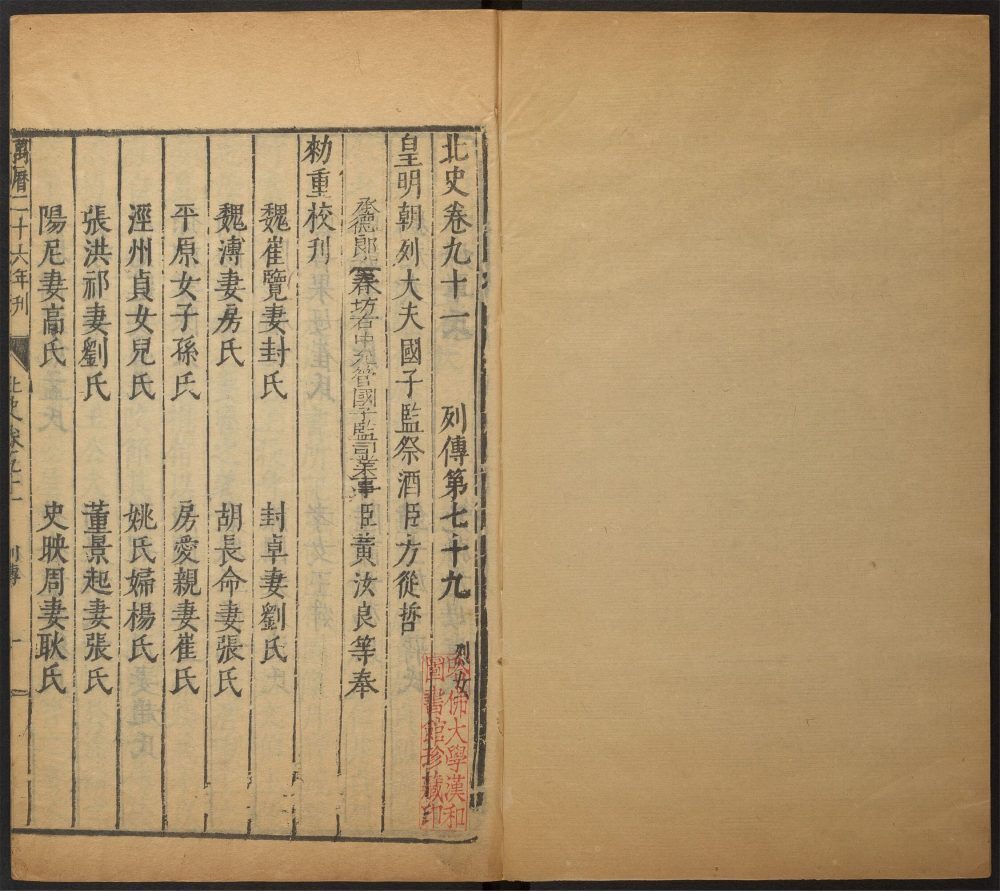 北史卷九十一　列傳第七十九　烈女
皇明朝列大夫國子監祭酒臣方從哲
承德郎右春坊右中允管國子監司業事臣黃汝良等奉
勑重校刊
魏崔覽妻封氏　封卓妻劉氏
魏溥妻房氏　胡長命妻張氏
平原女子孫氏　房愛親妻崔氏
涇州貞女兒氏　姚氏婦楊氏
張洪祁妻劉氏　董景起妻張氏
陽尼妻高氏　史映周妻耿氏
萬曆二十六年刊　北史卷九十一　列傳　一
哈佛大學漢和
圖書館珍藏印